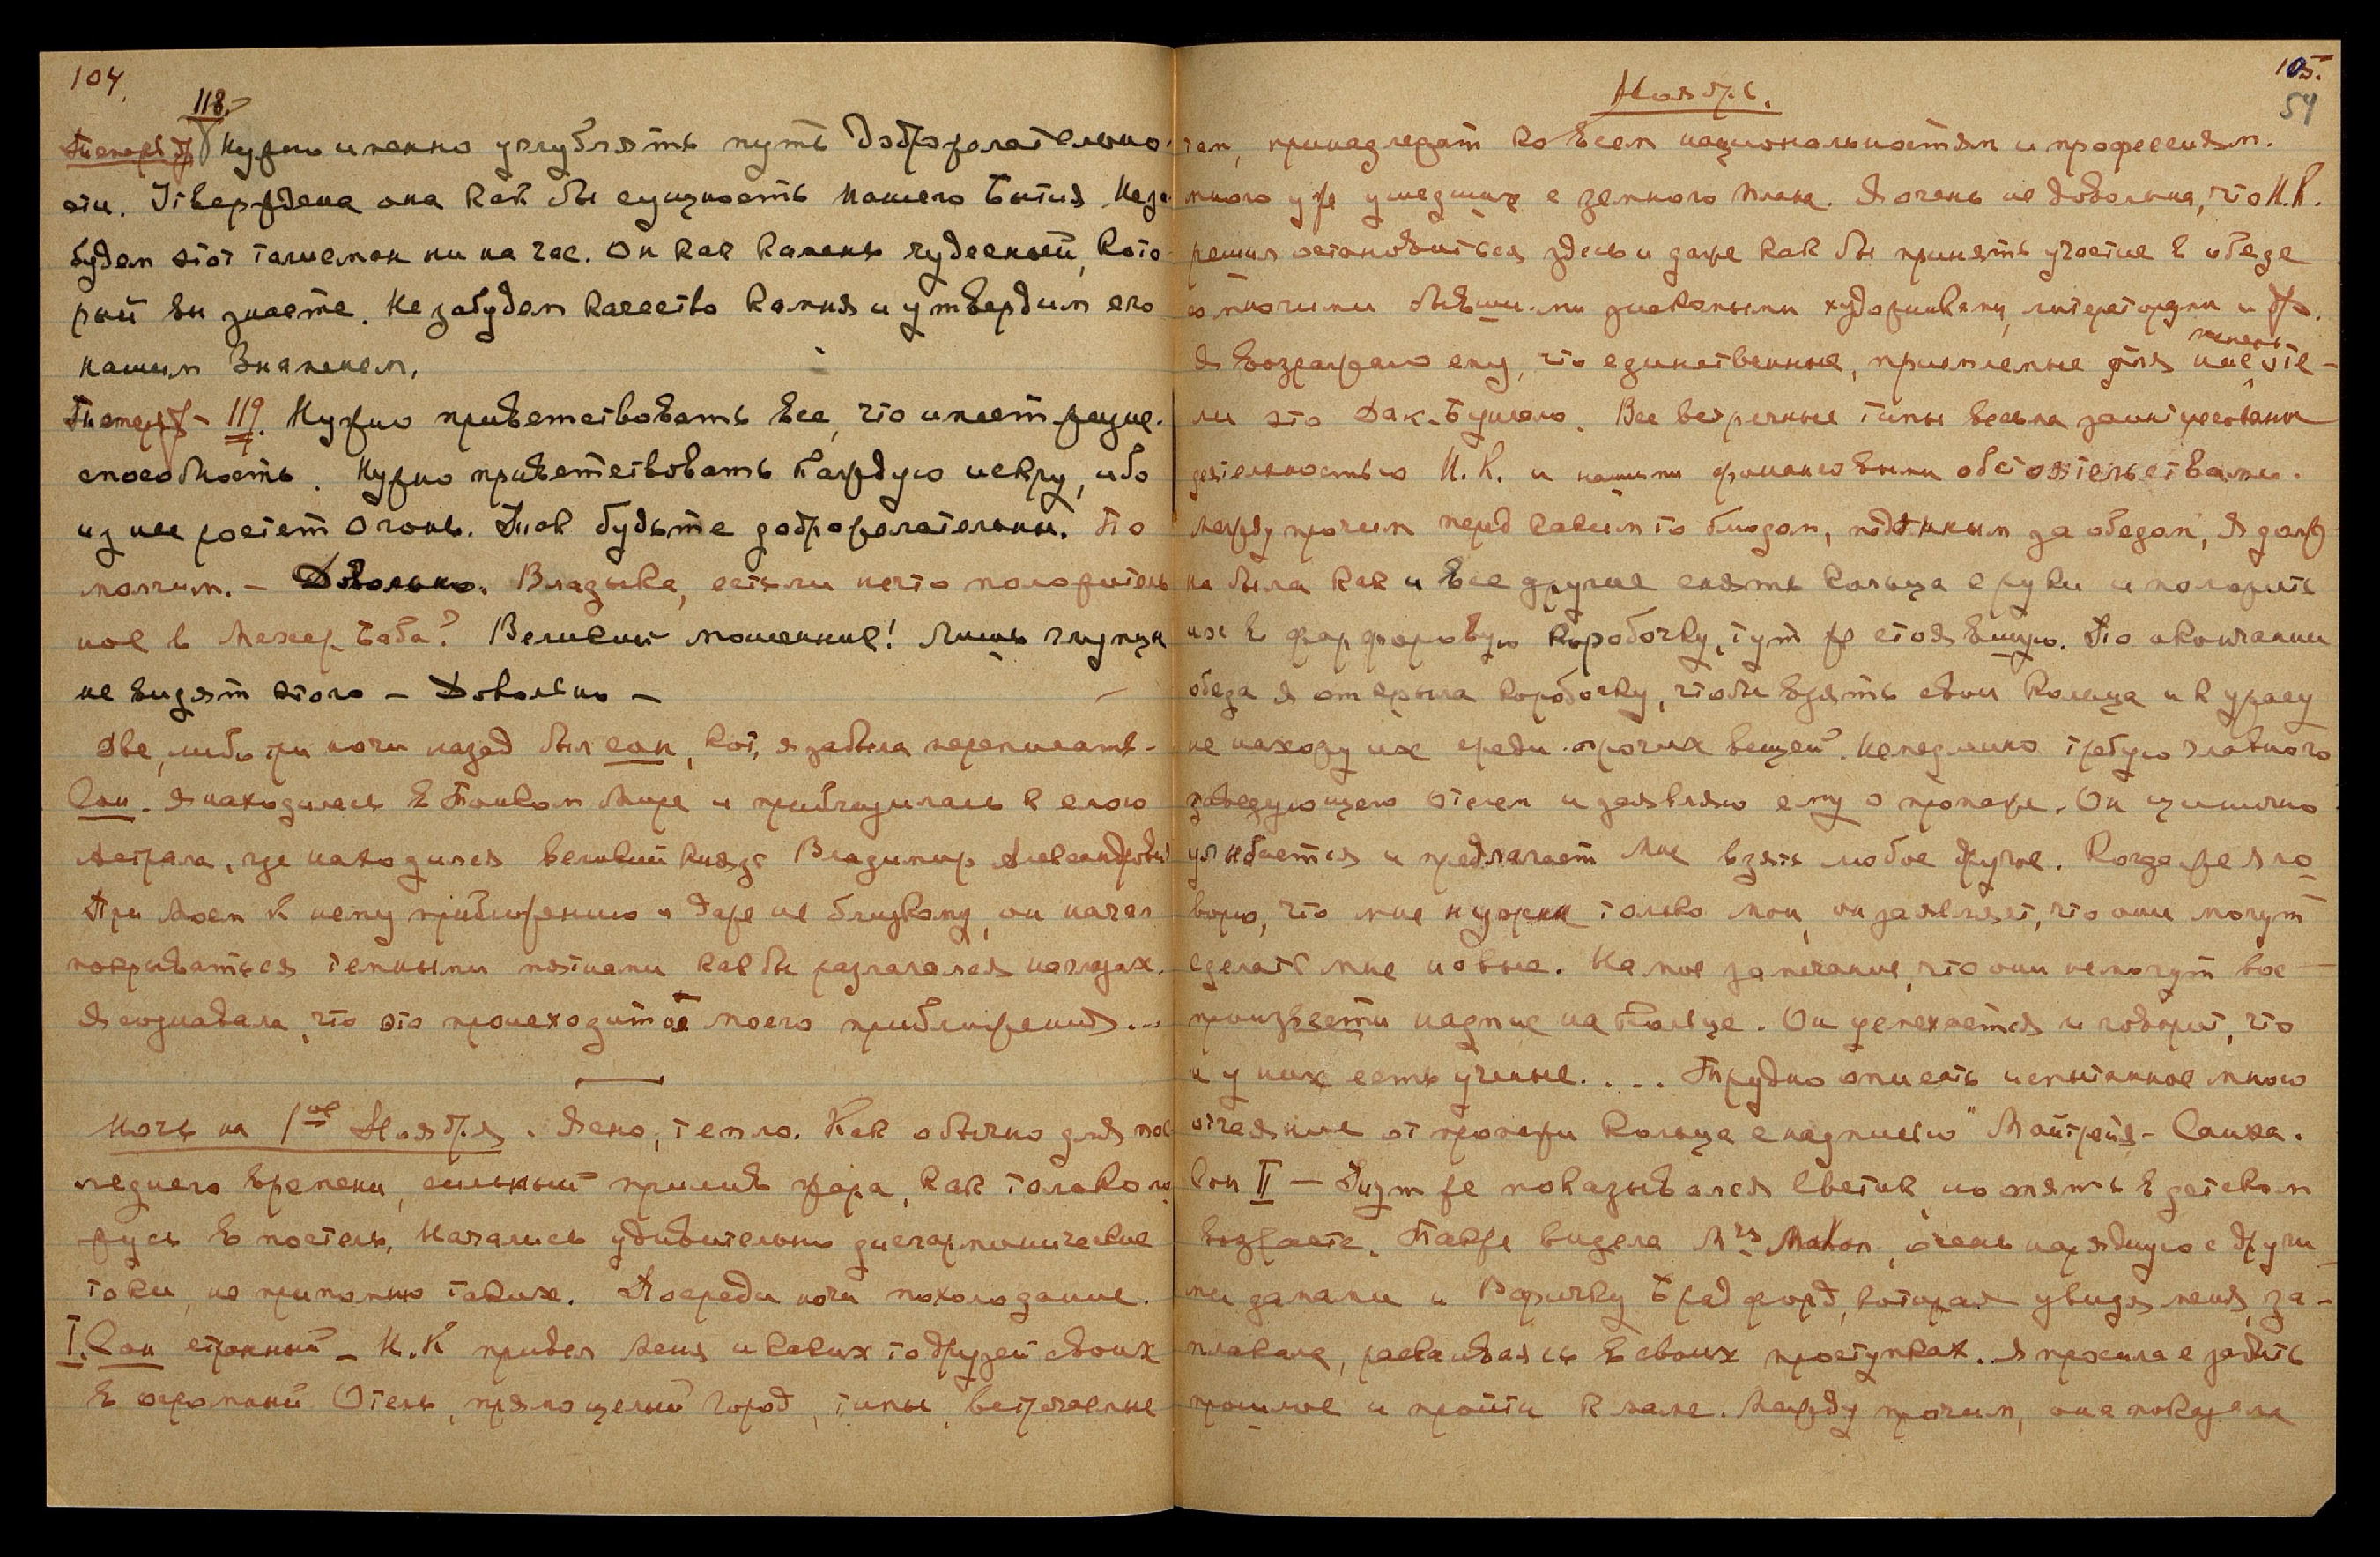 104.
118.
Теперь Нужно именно углублять путь доброжелательно-
сти. Утверждена она как бы сущность нашего Бытия. Не за-
будем этот талисман ни на час. Он как камень чудесный, кото-
рый вы знаете. Не забудем качество камня и утвердим его
нашим Знаменем.
119. Нужно приветствовать все, что имеет жизне-
способность. Нужно приветствовать каждую искру, ибо
из нее растет огонь. Так будьте доброжелательны. По
молчим. – Довольно. Владыка, есть ли нечто положитель
ное в Мехер Баба? Великий мошенник! Лишь глупцы
не видят этого – Довольно –
Две, либо три ночи назад был сон, кот. я забыла переписать –
Сон. Я находилась в Тонком Мире и приблизилась к слою
Астрала, где находился великий князь Владимир Александрович
При моем к нему приближению и даже не близкому, он начал
покрываться темными пятнами как бы разлагался на глазах.
Я сознавала, что это происходит от моего приближения...
Ночь на 1ое Ноября. Ясно, тепло. Как обычно для пос
леднего времени, сильный прилив жара, как только ло
жусь в постель. Начались удивительно дисгармонические
токи, не припомню таких. Посреди ночи похолодание.
I. Сон странный – Н.К. привел меня и каких то друзей своих
в огромный Отель, прямо целый город, типы, встречаемые
Ноябрь.
105.
54
там, принадлежат ко всем национальностям и профессиям.
много уже ушедших с земного плана. Я очень не довольна, что Н.К.
решил остановиться здесь и даже как бы принять участие в обеде
со многими бывшими знакомыми художниками, литераторами и др.
Я возражаю ему, что единственные, приемлемые для нас оте-
ли это Дак-Бунгало. Все встречные типы весьма заинтересованы
деятельностью Н.К. и нашими финансовыми обстоятельствами.
Между прочим перед каким то блюдом, поданным за обедом, я долж
на была как и все другие снять кольца с руки и положить
их в фарфоровую коробочку, тут же стоявшую. По окончании
обеда я открыла коробочку, чтобы взять свои кольца и к ужасу
не нахожу их среди прочих вещей. Немедленно требую главного
заведующего отелем и заявляю ему о пропаже. Он цинично
улыбается и предлагает мне взять любое другое. Когда же я го
ворю, что мне нужны только мои, он заявляет, что они могут
сделать мне новые. На мое замечание, что они не могут вос
произвести надпис на Кольце. Он усмехается и говорит, что
и у них есть ученые.... Трудно описать испытанное мною
отчаяние от пропажи Кольца с надписью "Майтрейя – Санха.
Сон II – Тут же показывался Светик, но опять в детском
возрасте. Также видела Mrs Макон, очень нарядную с други
ми дамами и Бредфорд, которая увидя меня, за-
плакала, раскаиваясь в своих проступках. Я просила ее забыть
прошлое и прийти к маме. Между прочим, она показала